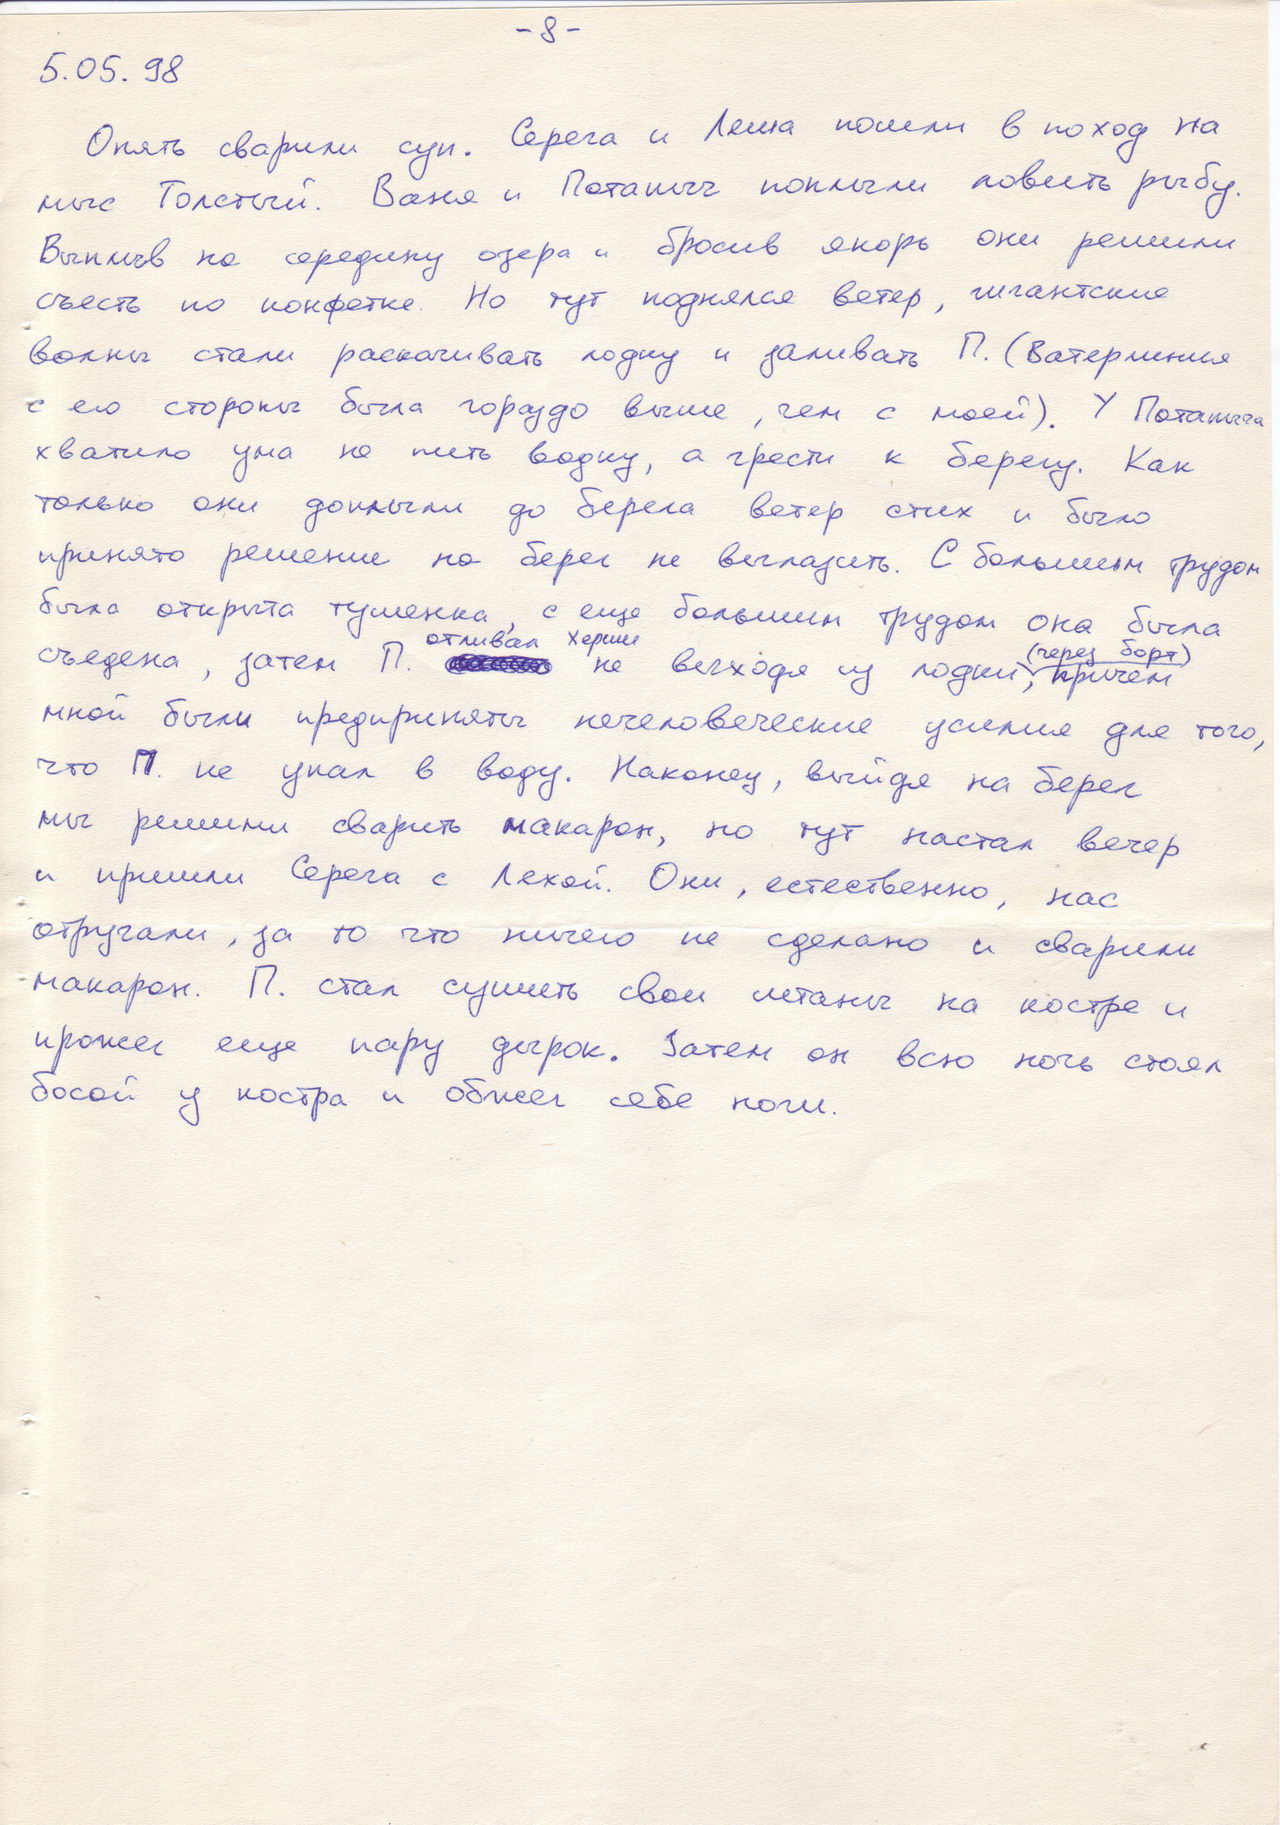 -8-
5.05.98
Опять сварили суп. Серега и Леша пошли в поход на
мыс Толстый. Ваня и Потапыч поплыли ловить рыбу.
Выплыв на середину озера и бросив якорь они решили
съесть по конфетке. Но тут поднялся ветер, гигантские
волны стали раскачивать лодку и заливать П. (Ватерлиния
с его стороны была гораздо выше, чем с моей). У Потапыча
хватило ума не пить водку, а грести к берегу. Как
только они доплыли до берега ветер стих и было
принято решение на берег не вылазить. С большим трудом
была открыта тушенка, с еще большим трудом она была
отливал Херши (через борт)
съедена, затем П. не выходя из лодки, причем
мной были предприняты нечеловеческие усилия для того,
что П. не упал в воду. Наконец, выйдя на берег
мы решили сварить макарон, но тут настал вечер
и пришли Серега с Лехой. Они, естественно, нас
отругали, за то что ничего не сделано и сварили
макарон. П. стал сушить свои штаны на костре и
прожег еще пару дырок. Затем он всю ночь стоял
босой у костра и обжег себе ноги.